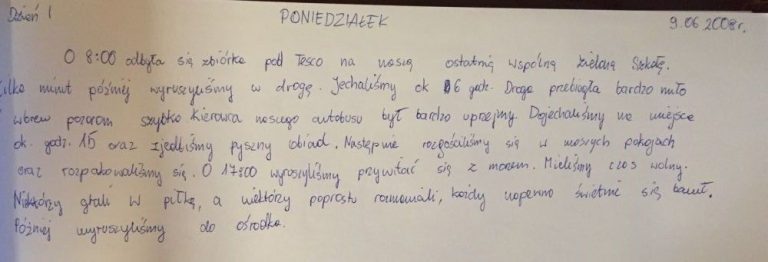 Dzień 1 PONIEDZIAŁEK 9.06.2008r.
O 8:00 odbyła się zbiórka pod Tesco na naszą ostatnią wspólną Zieloną Szkołę.
Kilka minut później wyruszyliśmy w drogę. Jechaliśmy ok 6 godz. Droga przebiegła bardzo miło
wbrew pozorom szybko Kierowca naszego autobusu był bardzo uprzejmy. Dojechaliśmy na miejsce
ok. godz. 15 oraz zjedliśmy pyszny obiad. Następnie rozgościliśmy się w naszych pokojach
oraz rozpakowaliśmy się. O 17:00 wyruszyliśmy przywitać się z morzem. Mieliśmy czas wolny.
Niektórzy grali w piłkę, a niektórzy poprostu rozmawiali, każdy napewno świetnie się bawił.
Później wyruszyliśmy do ośrodka.